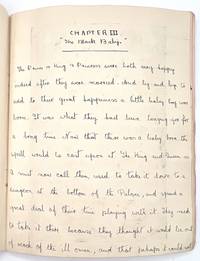 CHAPTER III
"The Black Baby."
The Prince or King & Princess were both very happy
indeed after they were married. And by-and-by to
add to their great happiness a little baby boy was
born. It was what they had been longing for for
a long time. Now that there was a baby born the
spell would be cast upon it. The King and Queen as
must now call them used to take it down to a
dungeon at the bottom of the Palace, and spend a
great deal of their time playing with it. They used
to take it there because they thought it would be out
of reach of the ill omen, and that perhaps it would not